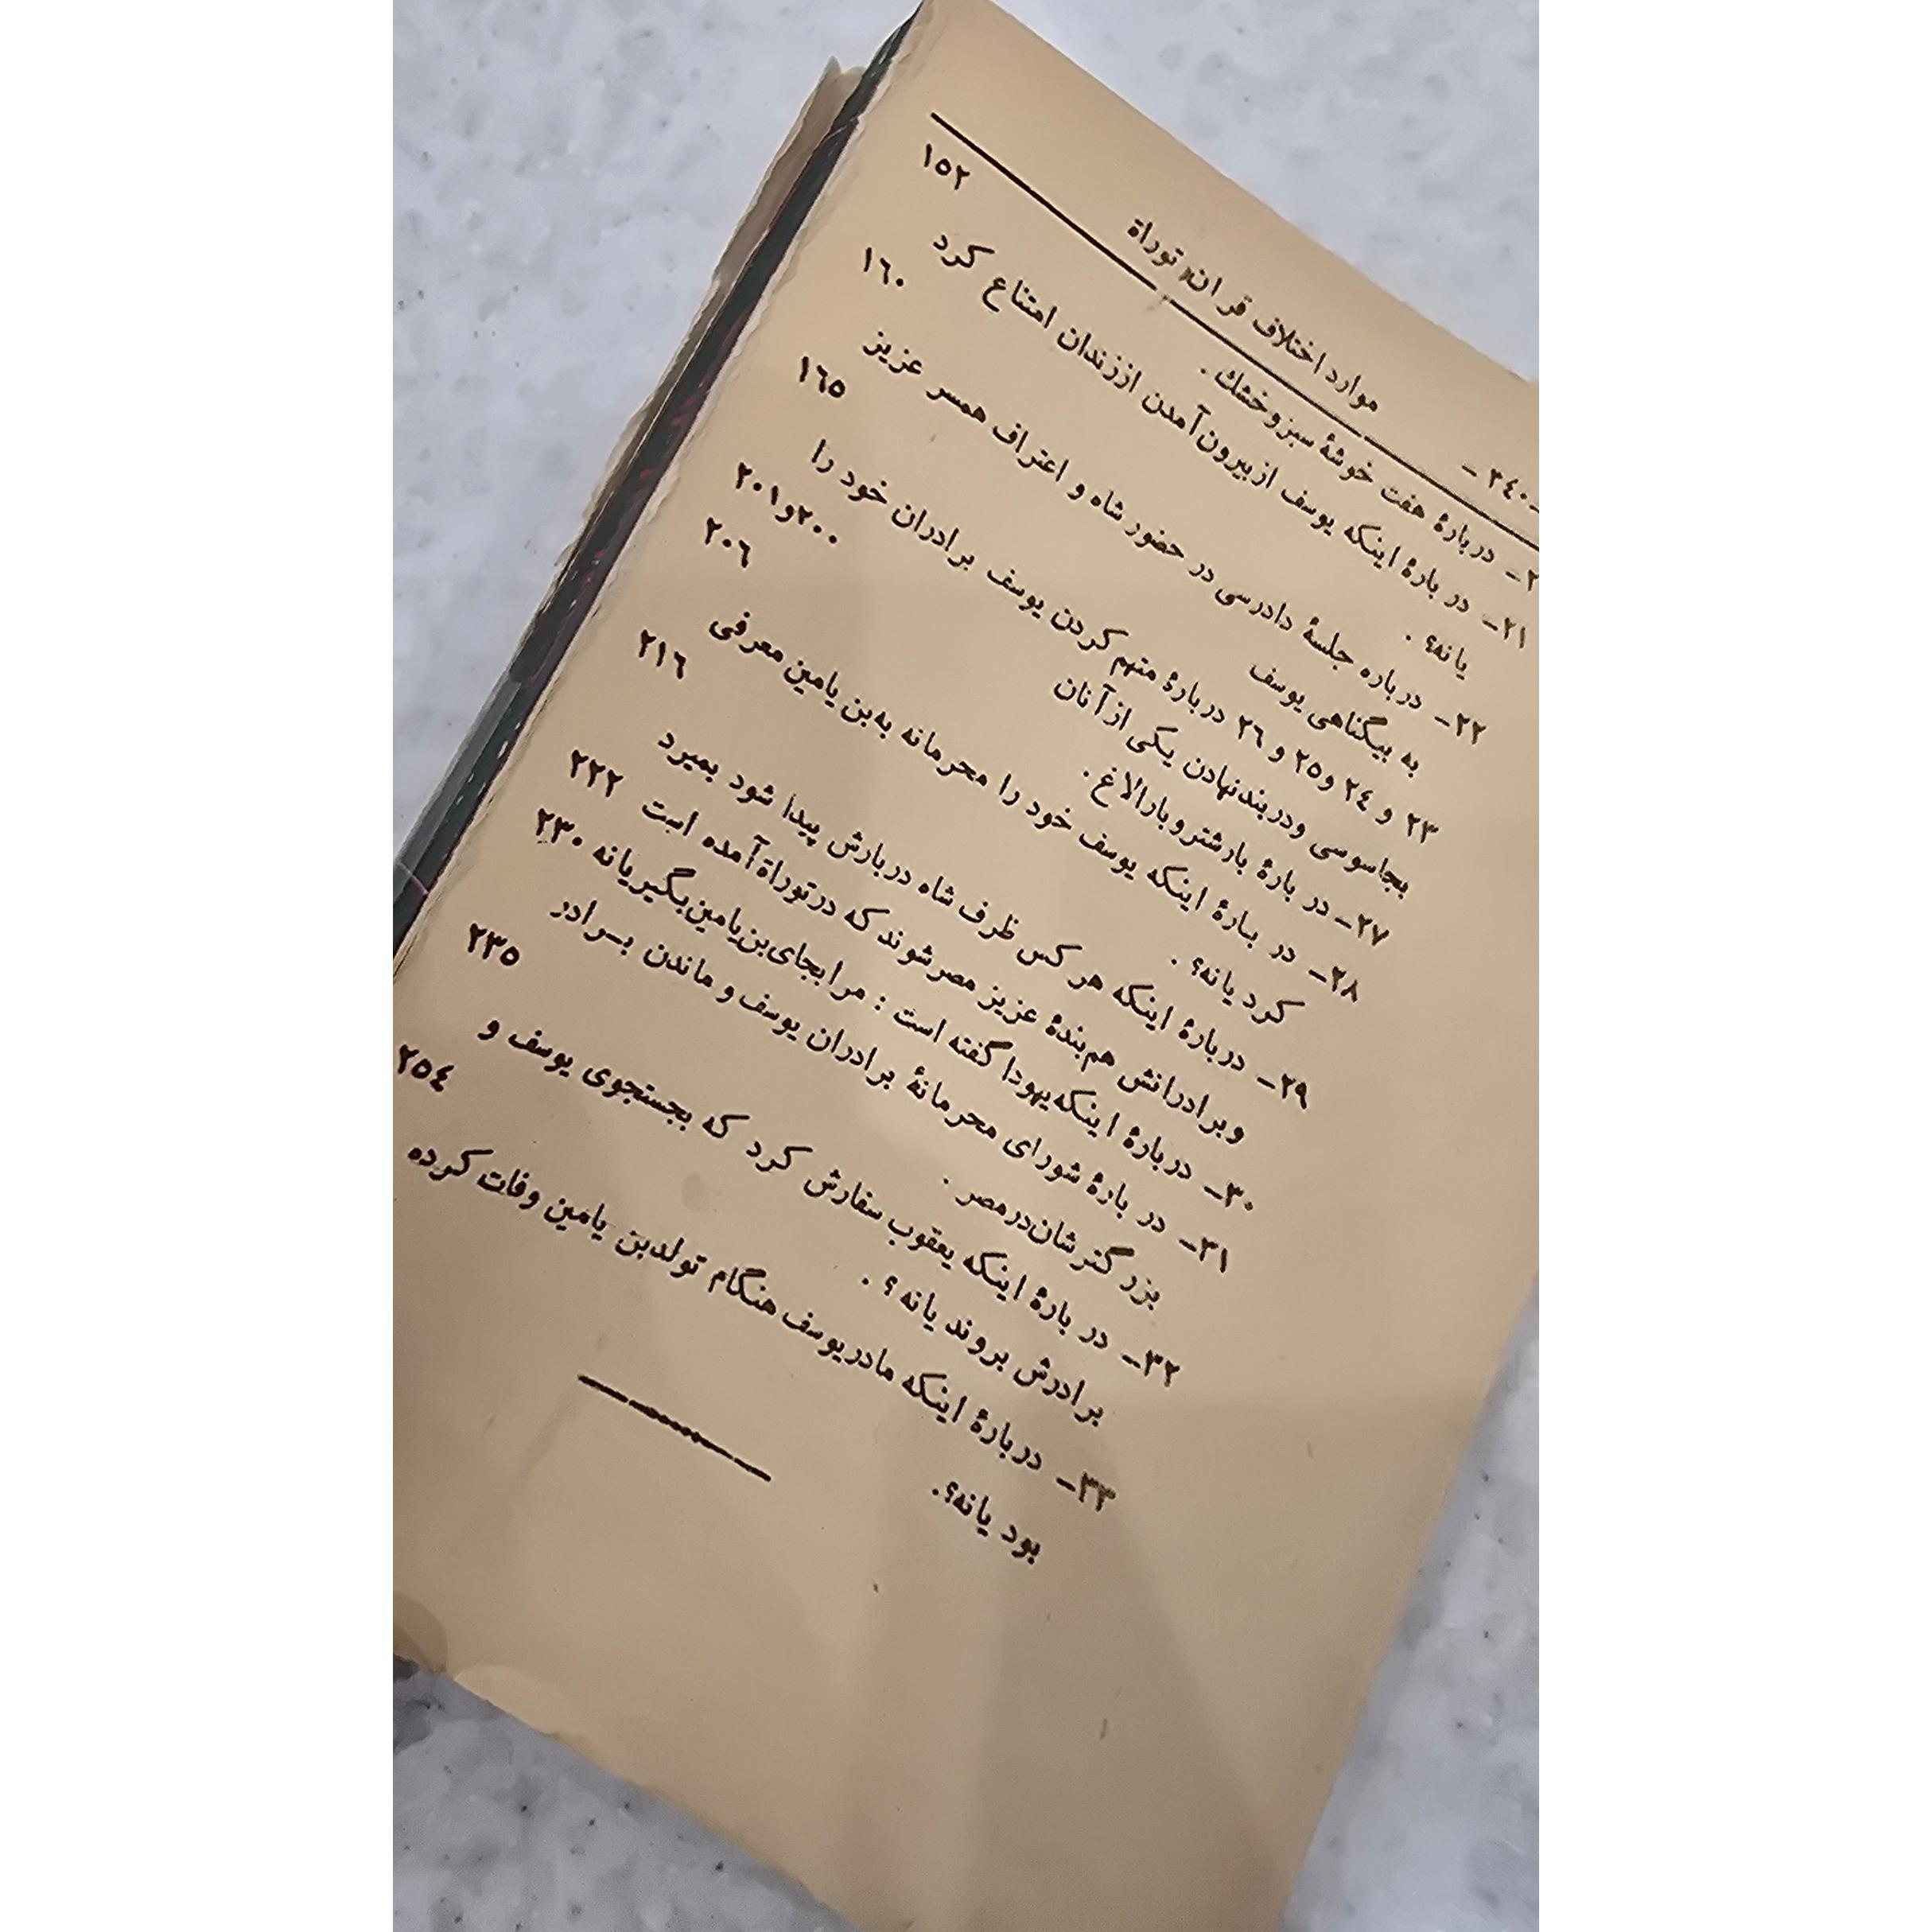 -٣٤٠-
موارد اختلاف قرآن و توراة
دربارهٔ هفت خوشهٔ سبز و خشك . ١٥٢
٢١- در بارهٔ اینکه یوسف از بیرون آمدن از زندان امتناع کرد
یا نه؟ . ١٦٠
٢٢- درباره جلسهٔ دادرسی در حضور شاه و اعتراف همسر عزیز
به بیگناهی یوسف ١٦٥
٢٣ و ٢٤ و ٢٥ و ٢٦ دربارهٔ متهم کردن یوسف برادران خود را
بجاسوسی و دربند نهادن یکی از آنان ٢٠٠ و ٢٠١
٢٧- در بارهٔ بار شتر و بار الاغ . ٢٠٦
٢٨- در بارهٔ اینکه یوسف خود را محرمانه به بن یامین معرفی
کرد یا نه؟ . ٢١٦
٢٩- دربارهٔ اینکه هر کس ظرف شاه در بارش پیدا شود بمیرد
و برادرانش هم بندهٔ عزیز مصر شوند که در توراة آمده است ٢٢٢
٣٠- دربارهٔ اینکه یهودا گفته است : مرا بجای بن یامین بگیر یا نه ٢٣٠
٣١- در بارهٔ شورای محرمانهٔ برادران یوسف و ماندن بـرادر
بزرگترشان در مصر . ٢٣٥
٣٢- در بارهٔ اینکه یعقوب سفارش کرد که بجستجوی یوسف و
برادرش بروند یا نه ؟ . ٢٥٤
٣٣- دربارهٔ اینکه مادر یوسف هنگام تولد بن یامین وفات کرده
بود یا نه؟.